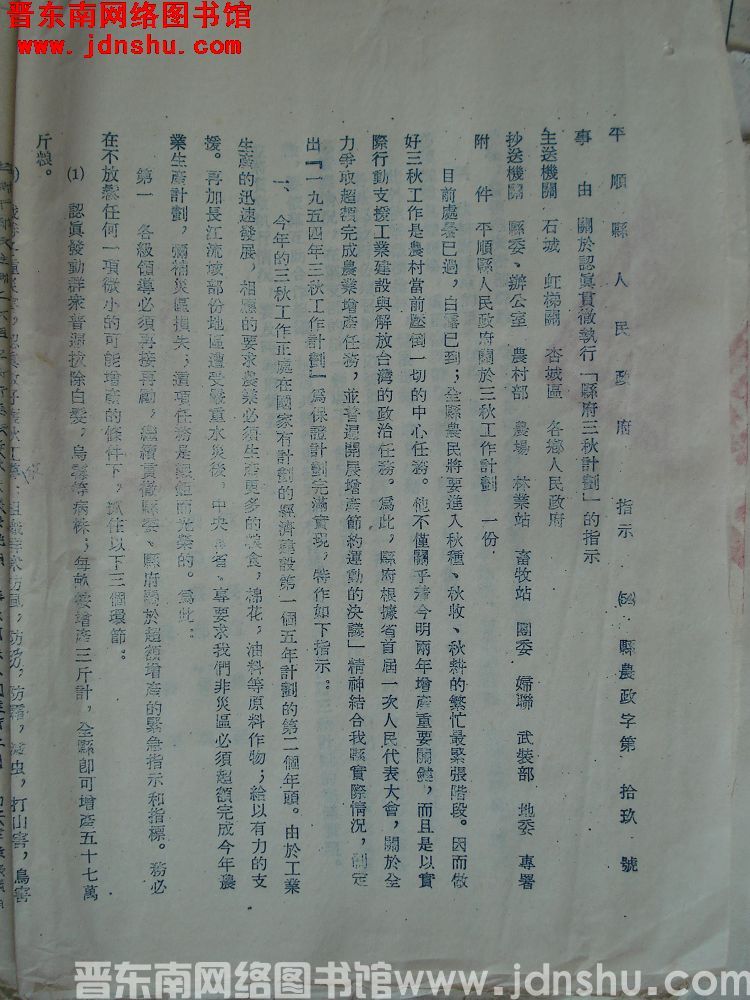 晋东南网络图书馆
www.jdnshu.com
平順縣人民政府指示 (54)縣農政字第拾玖號
事由 關於認眞貫徹執行「縣府三秋計劃」的指示
主送機關 石城 虹梯關 杏城區 各鄉人民政府
抄送機關 縣委、辦公室 農村部 農場 林業站 畜牧站 團委 婦聯 武裝部 地委 專署
附件 平順縣人民政府關於三秋工作計劃 一份。
目前處暑已過，白露已到；全縣農民將要進入秋種、秋收、秋耕的繁忙最緊張階段。因而做
好三秋工作是農村當前壓倒一切的中心任務。他不僅關乎着今明兩年增產重要關鍵，而且是以實
際行動支援工業建設與解放台灣的政治任務。爲此，縣府根據省首屆一次人民代表大會，關於全
力爭取超額完成農業增產任務，並普遍開展增產節約運動的決議」精神結合我縣實際情況，制定
出「一九五四年三秋工作計劃」爲保證計劃完滿實現，特作如下指示。
一、今年的三秋工作正處在國家有計劃的經濟建設第一個五年計劃的第二個年頭。由於工業
生產的迅速發展，相應的要求農業必須生產更多的糧食，棉花，油料等原料作物；給以有力的支
援。再加長江流域部份地區遭受嚴重水災後，中央、省、專要求我們非災區必須超額完成今年農
業生產計劃，彌補災區損失；這項任務是艱鉅而光榮的。爲此：
第一 各級領導必須再接再勵，繼續貫徹縣委、縣府關於超額增產的緊急指示和指標。務必
在不放鬆任何一項微小的可能增產的條件下，抓住以下三個環節。
(1) 認眞發動群衆普遍拔除白髮，烏霉等病株；每畝按增產三斤計，全縣卽可增產五十七萬
斤糧。
防風，防澇，防霜，滅虫，打山害，鳥害
晋东南网络图书馆www.jdnshu.com